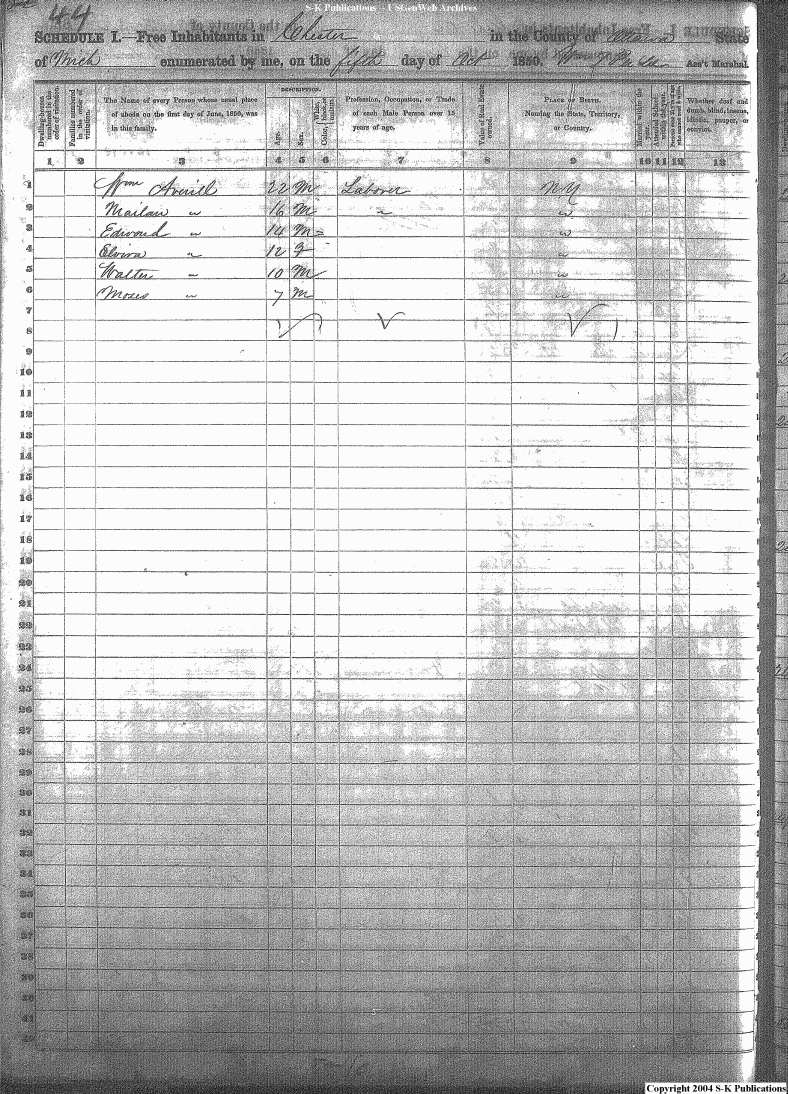 S-K Publications - USGenWeb Archives
44
SCHEDULE I.—Free Inhabitants in Chester in the County of Ottawa State
of Mich enumerated by me, on the fifth day of Oct 1850. Ass't Marshal.
Dwelling-houses numbered in the order of visitation.
Families numbered in the order of visitation.
The Name of every Person whose usual place of abode on the first day of June, 1850, was in this family.
DESCRIPTION.
Age.
Sex.
Color, White, black, or mulatto.
Profession, Occupation, or Trade of each Male Person over 15 years of age.
Value of Real Estate owned.
PLACE OF BIRTH. Naming the State, Territory, or Country.
Married within the year.
Attended School within the year.
Whether deaf and dumb, blind, insane, idiotic, pauper, or convict.
1 2 3 4 5 6 7 8 9 10 11 12 13
1 Wm Averill 22 M Laborer NY
2 16 M " "
3 Edward " 14 M "
4 Elvira " 12 F "
5 Walter " 10 M "
6 Moses " 7 M "
7
8
9
10
11
12
13
14
15
16
17
18
19
20
21
22
23
24
25
26
27
28
29
30
31
32
33
34
35
36
37
38
39
40
41
42
Copyright 2004 S-K Publications